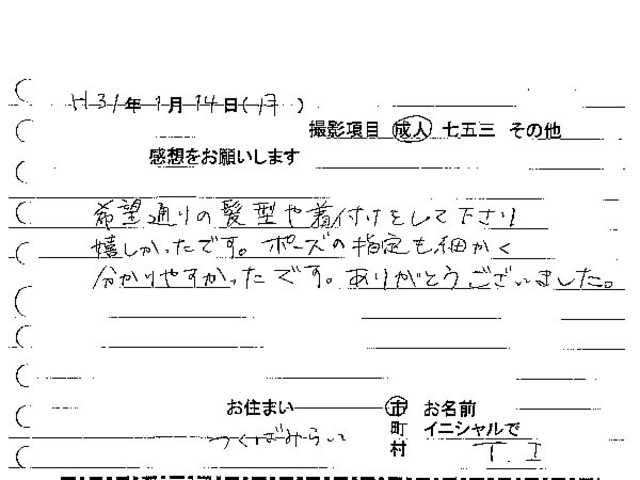 H31年1月14日(月)
撮影項目 成人 七五三 その他
感想をお願いします
希望通りの髪型や着付けをして下さり
嬉しかったです。ポーズの指定も細かく
分かりやすかったです。ありがとうございました。
お住まい 市 お名前
町 イニシャルで
つくばみらい 村 T.I